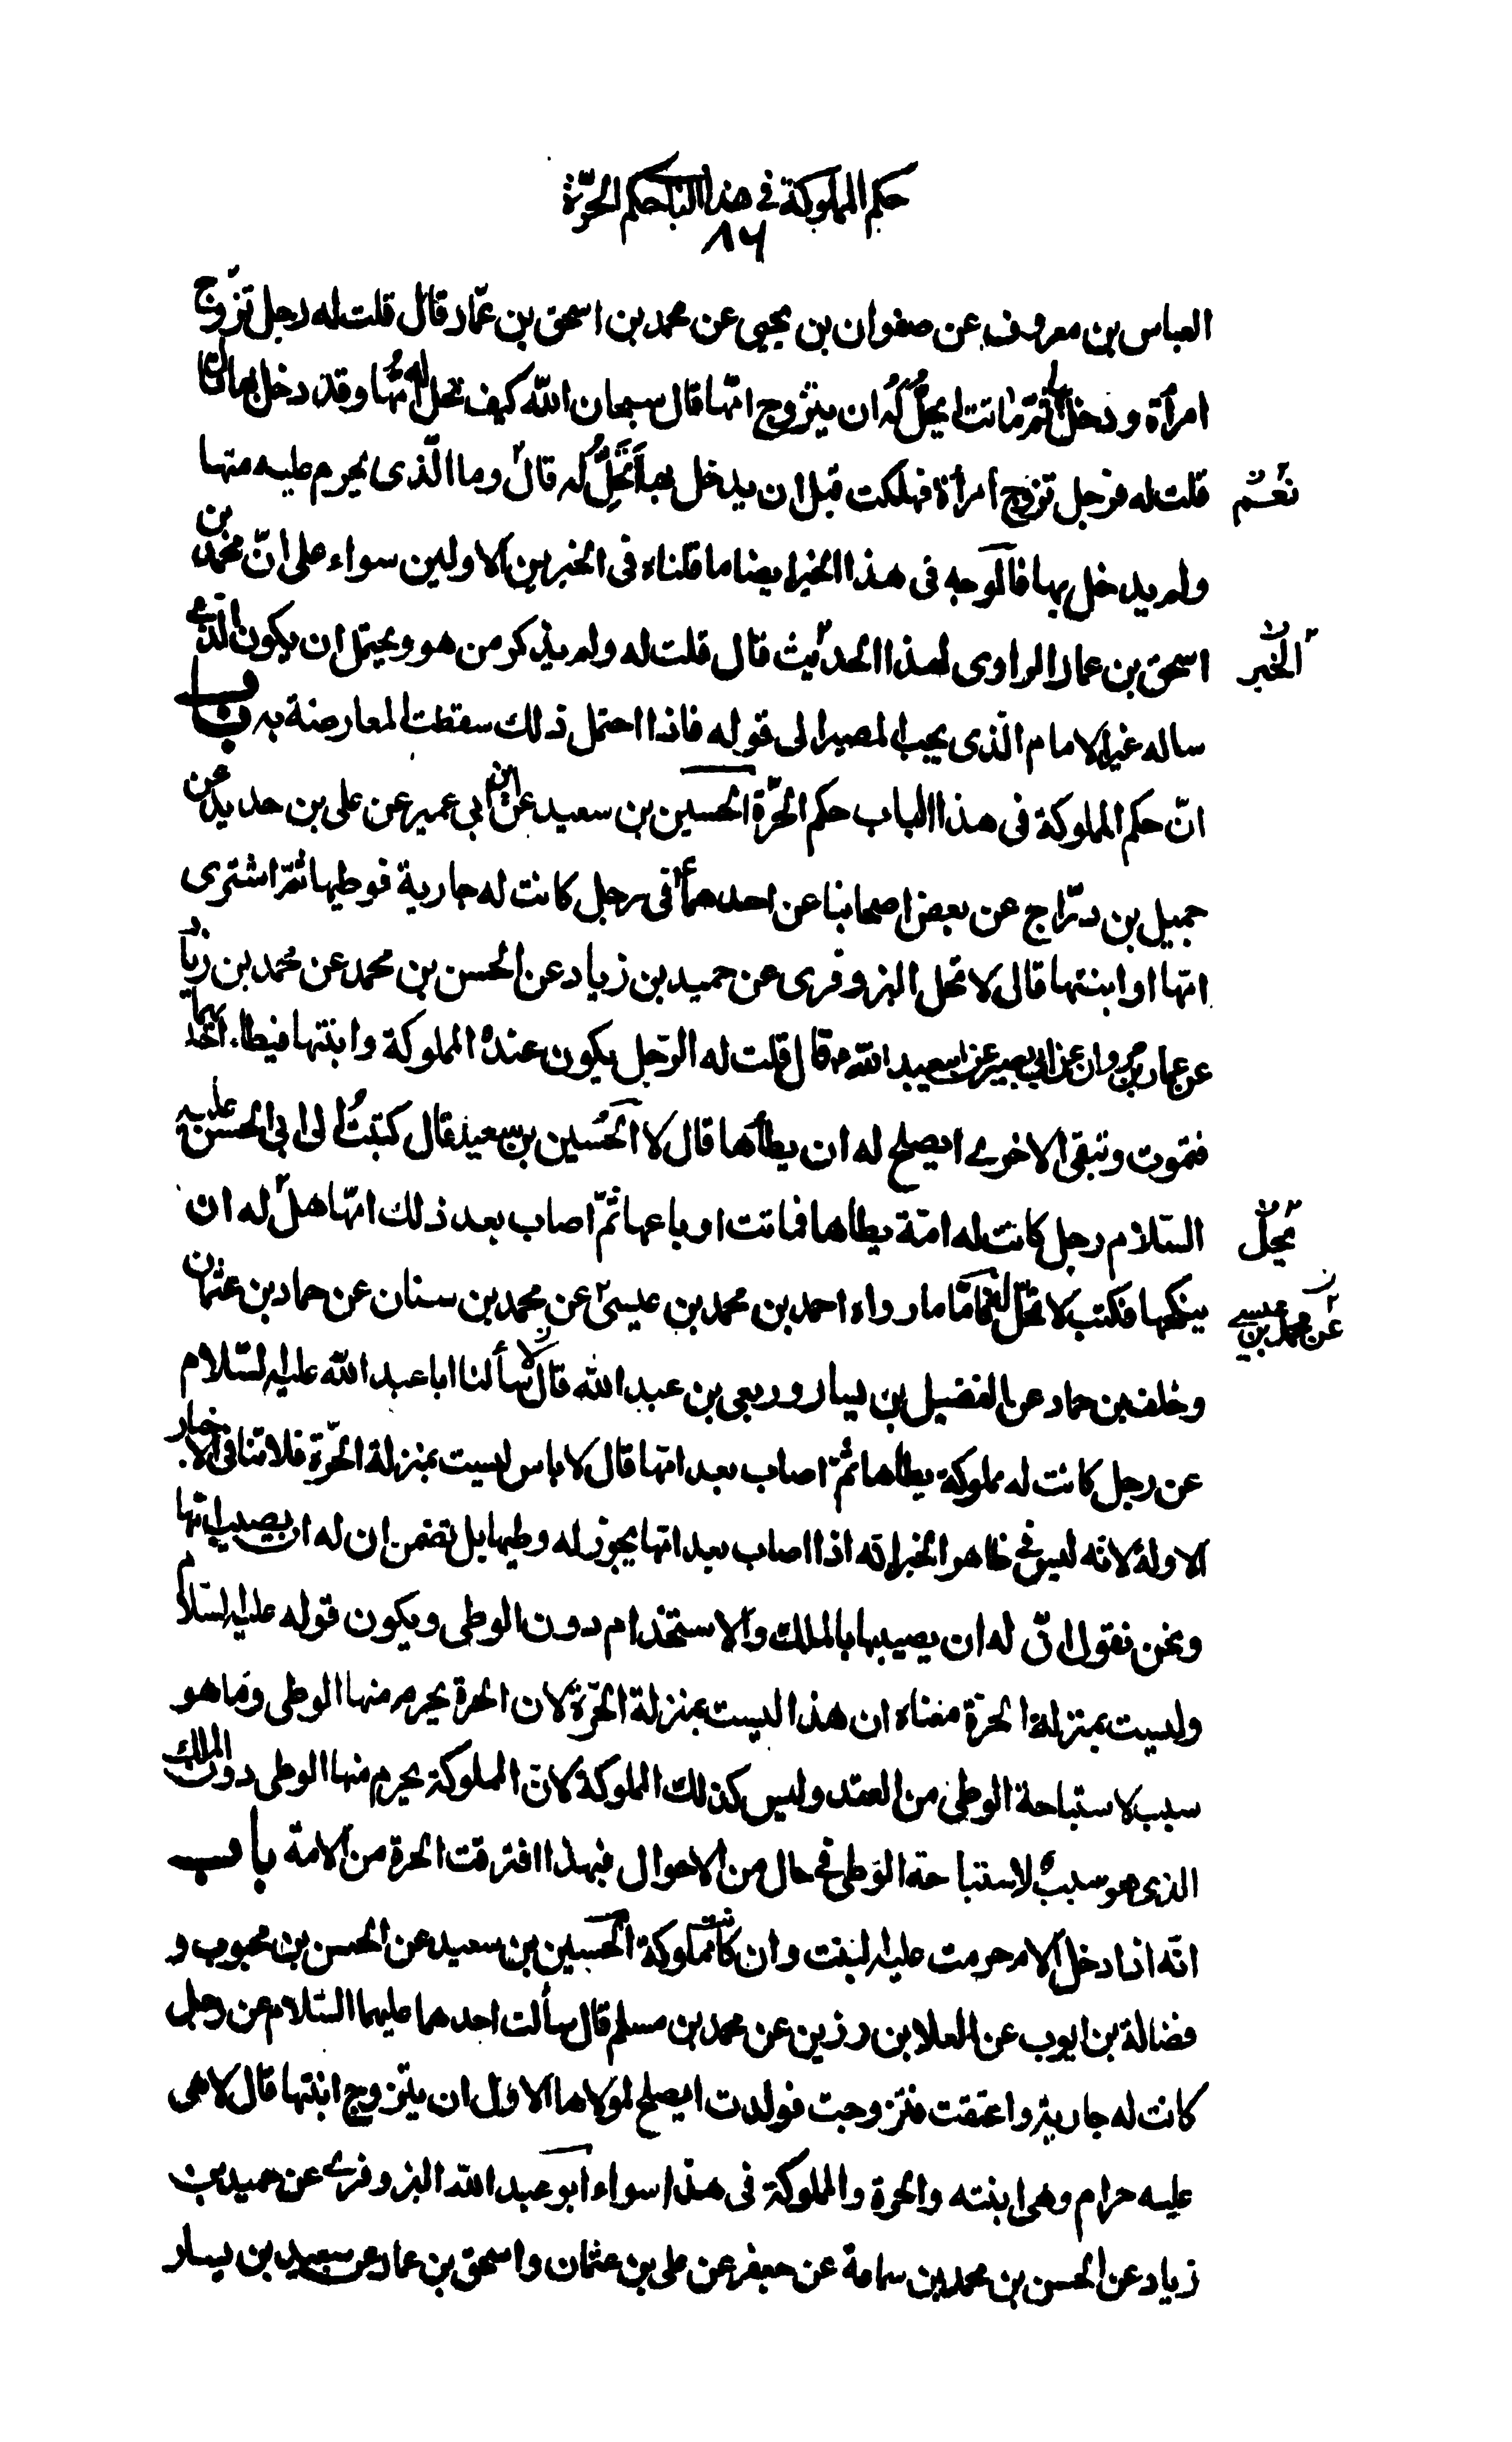 حكم المملوكة فى هذا الباب حكم الحرّة
٨٦
العباس بن معروف عن صفوان بن يحيى عن محمد بن اسحق بن عمّار قال قلت له رجل تزوّج
امرأة ودخل بها ثمّ ماتت ايحلّ له ان يتزوج امّها قال سبحان الله كيف تحل له امّها وقد دخل بها قال
قلت له فرجل تزوج امرأة فهلكت قبل ان يدخل بها تحلّ له قال وما الّذى يحرم عليه منها
نعم
ولم يدخل بها فالوجه فى هذا الخبر ايضا ما قلناه فى الخبرين الاولين سواء على انّ محمد بن
اسحق بن عمار الراوى لهذا الحديث قال قلت له ولم يذكر من هو ويحتمل ان يكون الّذى
الخبر
ساله غير الامام الّذى يجب المصير الى قوله فاذا احتمل ذلك سقطت المعارضة به باب
انّ حكم المملوكة فى هذا الباب حكم الحرّة الحسين بن سعيد عن ابن ابى عمير عن على بن حديد عن
جميل بن درّاج عن بعض اصحابنا عن احدهما فى رجل كانت له جارية فوطيها ثمّ اشترى
امّها او ابنتها قال لا تحل البزوفرى عن حميد بن زياد عن الحسن بن محمد عن محمد بن زياد
عن عمار بن مروان عن ابى بصير عن ابى عبد الله قال قلت له الرّجل يكون عنده المملوكة وابنتها فيطاء احديهما
فتموت وتبقى الاخرى ايصلح له ان يطأها قال لا الحسين بن سعيد قال كتبت الى ابى الحسن عليه
السّلام رجل كانت له امة يطاها فماتت او باعها ثمّ اصاب بعد ذلك امّها هل له ان
يحلّ
ينكحها فكتب لا تحلّ له فامّا ما رواه احمد بن محمد بن عيسى عن محمد بن سنان عن حماد بن عثمان
عن محمد بن عيسى
وخلف بن حماد عن الفضيل بن يسار وربعى بن عبد الله قال سألنا ابا عبد الله عليه السّلام
عن رجل كانت له مملوكة يطاها ثمّ اصاب بعد امّها قال لا باس ليست بمنزلة الحرّة فلا تنافى الاخبار
الاولة لانه ليس فى ظاهر الخبر انّه اذا اصاب بعد امها يجوز له وطيها بل تضمن ان له ان يصيب امّها
ونحن نقول انّ له ان يصيبها بالملك والاستخدام دون الوطى ويكون قوله عليه السّلام
وليست بمنزلة الحرّة معناه ان هذا ليست بمنزلة الحرّة لان الحرة يحرم منها الوطى وما هو
سبب لاستباحة الوطى من العقد وليس كذلك المملوكة لانّ المملوكة يحرم منها الوطى دون الملك
الذى هو سبب لاستباحة الوطى فى حال من الاحوال فبهذا افترقت الحرة من الامة باب
انّه اذا دخل بالام حرمت عليه البنت وان كانت مملوكة الحسين بن سعيد عن الحسن بن محبوب و
فضالة بن ايوب عن العلا بن رزين عن محمد بن مسلم قال سألت احدهما عليهما السّلام عن رجل
كانت له جارية واعتقت فتزوجت فولدت ايصلح لمولاها الاوّل ان يتزوج ابنتها قال لا هى
عليه حرام وهى ابنته والحرة والمملوكة فى هذا سواء ابو عبد الله البزوفرى عن حميد بن
زياد عن الحسن بن محمد بن سماعة عن جعفر عن على بن عثمان واسحق بن عمار عن سعيد بن يسار